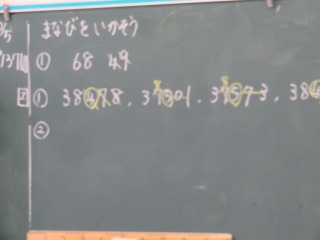 まなびをいかそう
① 68 49
2 ① 38478、37501、37573、384
②